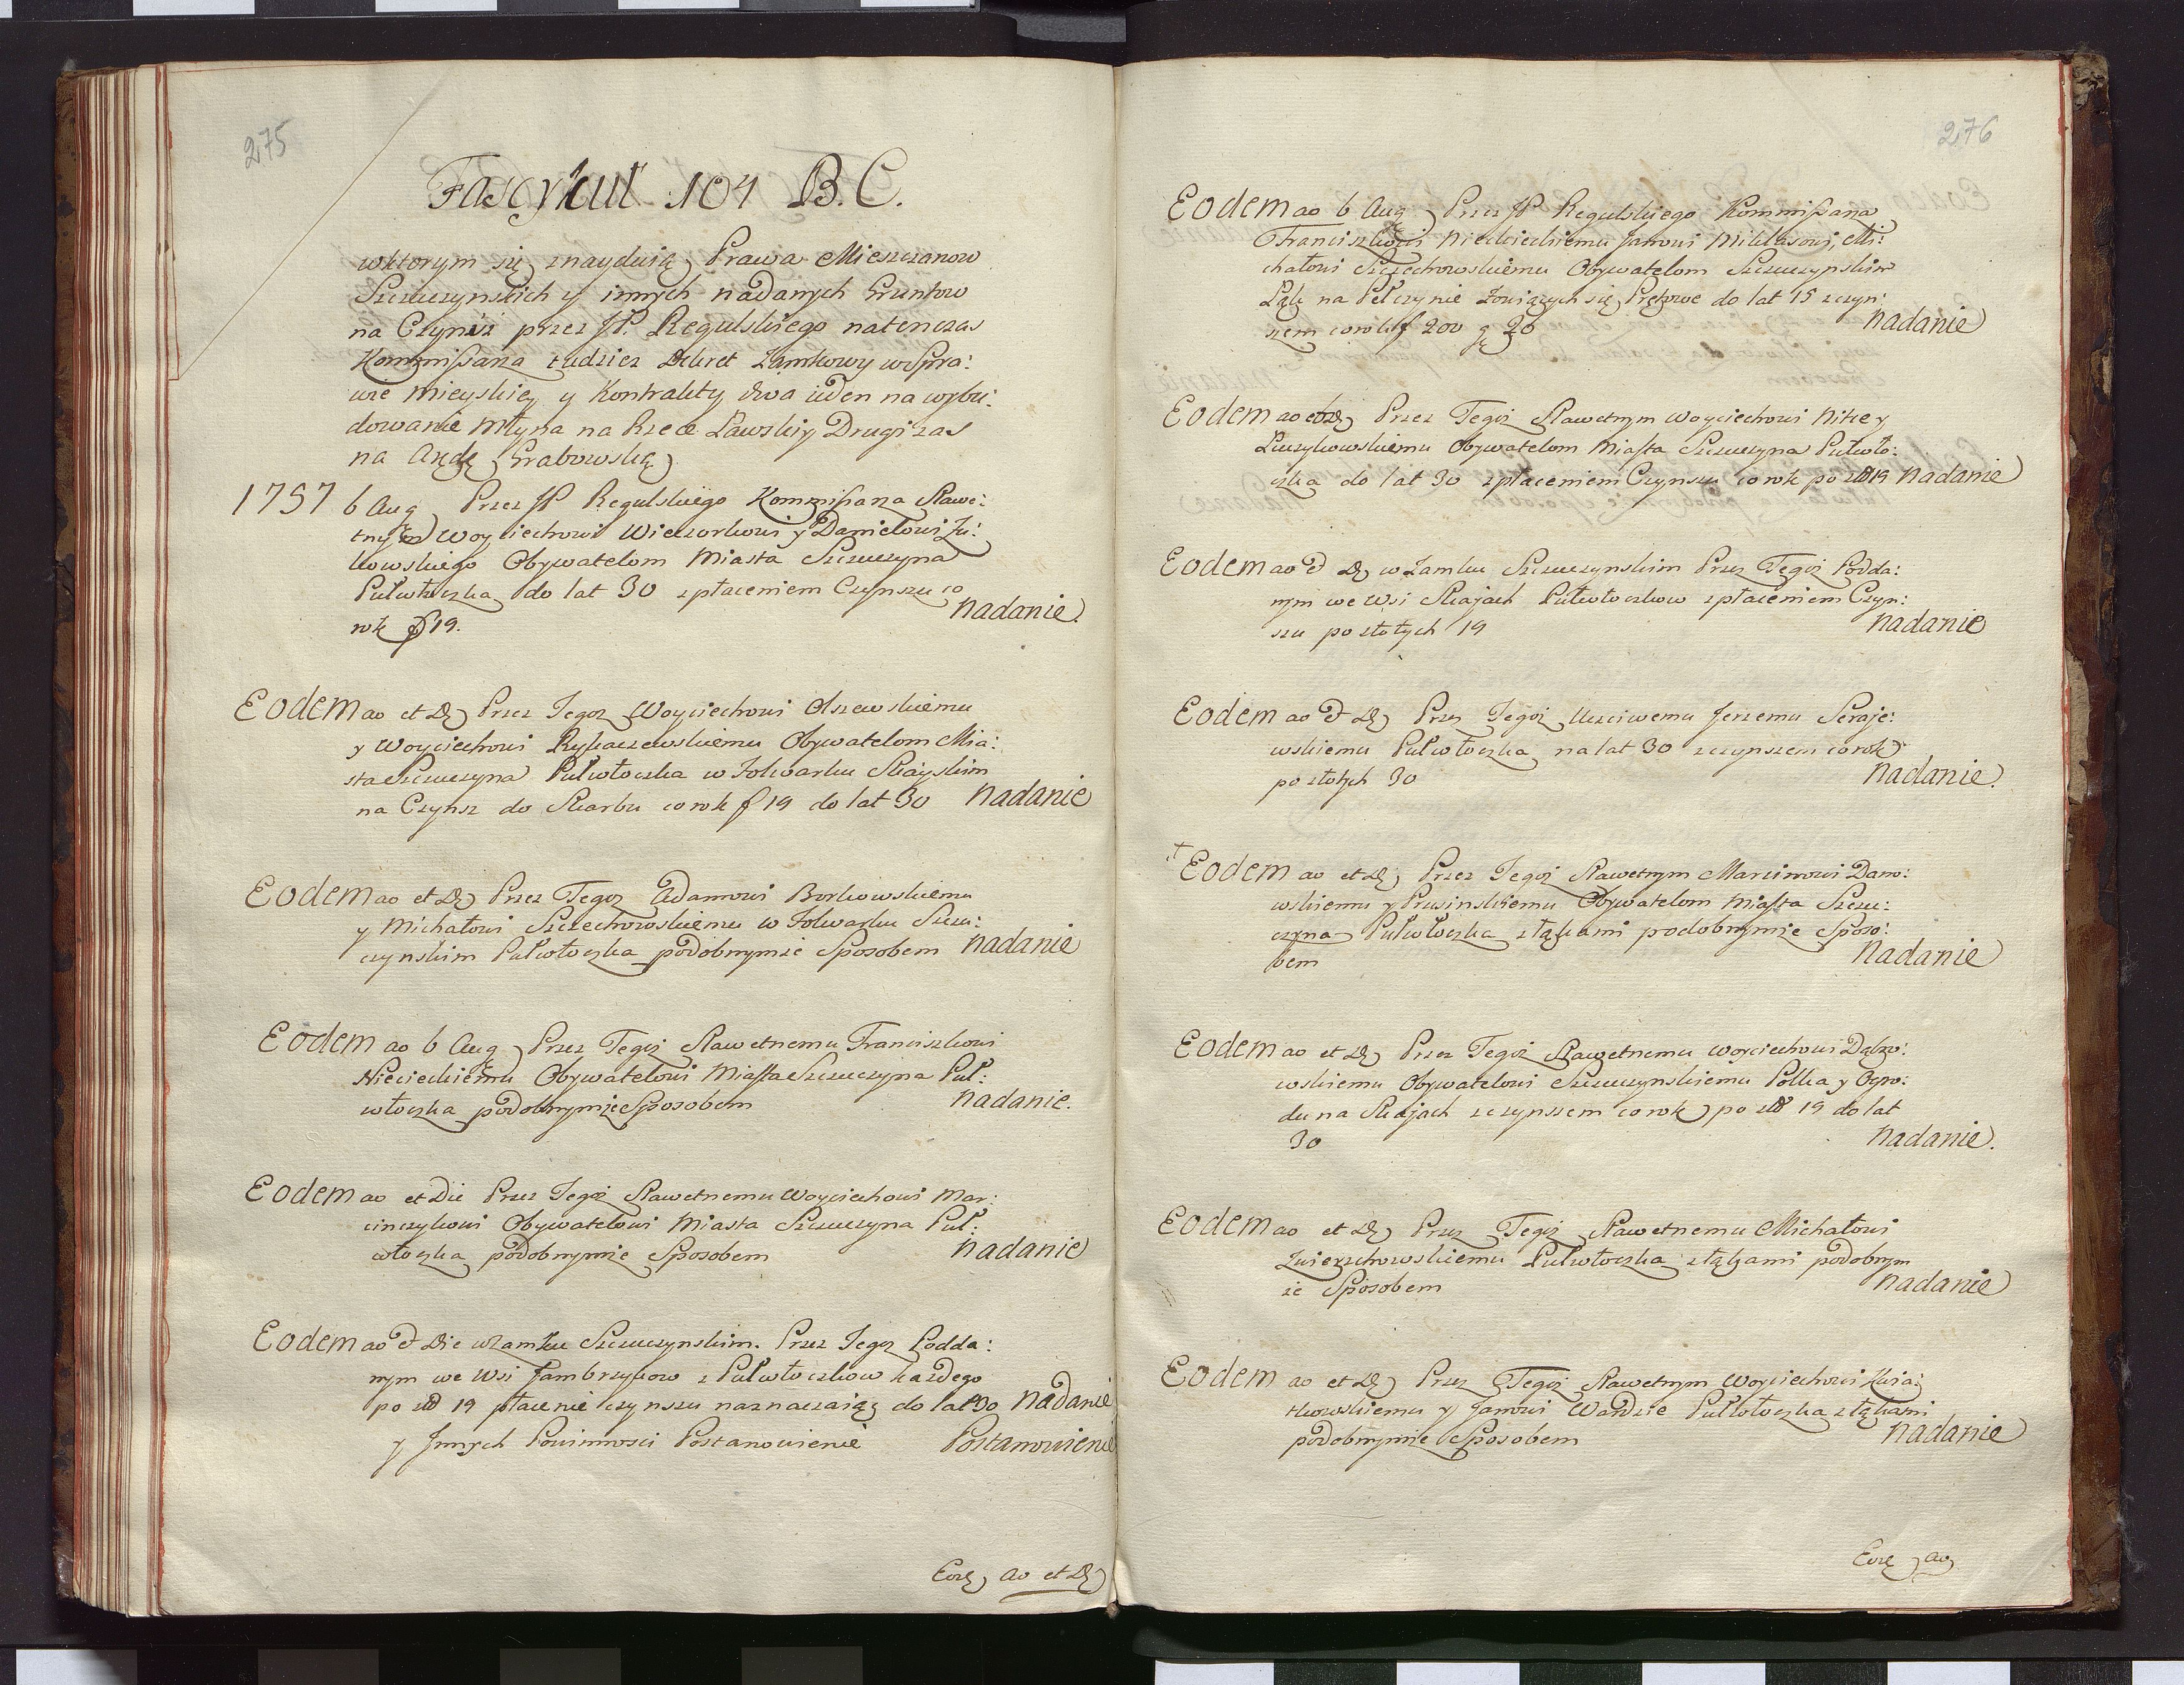 275
Fascykuł 104 B.C.
wktorym się znayduią Prawa Mieszczanow
Szczuczynskich y innych nadanych Gruntow
na Czynsz przez JP. Regulskiego natenczas
Kommissarza tudziez Dekret Zamkowy w Spra:
wie Mieyskiey y Kontrakty dwa ieden na wybu:
dowanie Młyna na Rzece Ławskiy Drugi zas
na Arędę Grabowską
1757 6 Aug Przez JP Regulskiego Kommissarza Sławe:
tnym Woyciechowi Wieczorkowi y Danielowi Zu:
kowskiego Obywatelom Miasta Szczuczyna
Pułwłoczka do lat 30 z płaceniem Czynszu co
rok f 19. Nadanie.
Eodem ao et De Przez Tegoz Woyciechowi Olszewskiemu
y Woyciechowi Rykaczewskiemu Obywatelom Mia:
sta Szczuczyna Pułwłoczka w Folwarku Skayskim
na Czynsz do Skarbu corok f 19 do lat 30 Nadanie
Eodem ao et De Przez Tegoz Adamowi Borkowskiemu
y Michałowi Szczechowskiemu w Folwarku Szczu:
czynskim Pułwłoczka podobnymze Sposobem Nadanie
Eodem ao 6 Aug Przez Tegoż Sławetnemu Franciszkowi
Niecieckiemu Obywatelowi Miasta Szczuczyna Puł:
włoczka podobnymże Sposobem Nadanie.
Eodem ao et Die Przez Tegoż Sławetnemu Woyciechowi Mar:
cinczykowi Obywatelowi Miasta Szczuczyna Puł:
włoczka podobnymże Sposobem Nadanie
Eodem ao et Die w Zamku Szczuczynskim. Przez Tegoz Podda:
nym we Wsi Jambrzykow z Pułwłoczkow każdego
po zł 19 płacenie czynszu naznaczaiąc do lat 30 Nadanie
y Innych Powinnosci Postanowienie Postanowienie
Eozę ao et De
276
Eodem ao 6 Aug Przez JP Regulskiego Kommissarza
Franciszkowi Niecieckiemu Janowi Miklasowi, Mi:
chałowi Szczechowskiemu Obywatelom Szczuczynskim
Łąk na Pełczynie zowiących się Prętowe do lat 15 z czyn:
szem corok f 200 g 26 Nadanie
Eodem ao et De Przez Tegoż Sławetnym Woyciechowi Nitce y
Łuczykowskiemu Obywatelom Miasta Szczuczyna Pułwło:
czka do lat 30 z płaceniem Czynszu corok po zł 19 Nadanie
Eodem ao et De w Zamku Szczuczynskim Przez Tegoż Podda:
nym we Wsi Skajach Pułwłoczkow z płaceniem Czyn:
szu po złotych 19 Nadanie
Eodem ao et De Przez Tegoż Uczciwemu Jerzemu Seraje:
wskiemu Pułwłoczka na lat 30 z czynszem corok
po złotych 30 Nadanie.
Eodem ao et De Przez Tegoż Sławetnym Marcinowi Dano:
wskiemu y Prusinskiemu Obywatelom Miasta Szczu:
czyna Pułwłoczka z łąkami podobnymże Sposo:
bem Nadanie
Eodem ao et De Przez Tegoż Sławetnemu Woyciechowi Dąbro:
wskiemu Obywatelowi Szczuczynskiemu Polka y Ogro:
du na Skajach z czynszem corok po zł 19 do lat
30 Nadanie.
Eodem ao et De Przez Tegoż Sławetnemu Michałowi
Zwierzchowskiemu Pułwłoczka z łąkami podobnym
że Sposobem Nadanie
Eodem ao et De Przez Tegoż Sławetnym Woyciechowi Kwia:
tkowskiemu y Janowi Wardzie Pułwłoczka z łąkami
podobnymże Sposobem Nadanie
Eozę ao